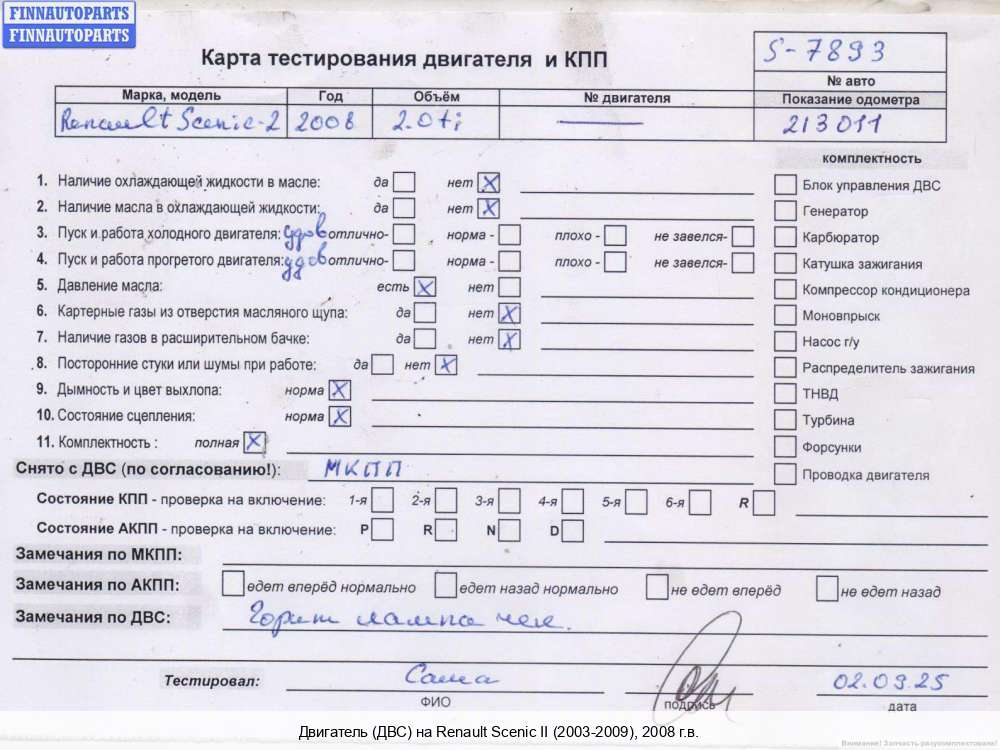 FINNAUTOPARTS
FINNAUTOPARTS
Карта тестирования двигателя и КПП
S-7893
№ авто
Марка, модель Год Объём № двигателя Показание одометра
Renault Scenic-2 2008 2.0ti — 213011
комплектность
1. Наличие охлаждающей жидкости в масле: да нет X
Блок управления ДВС
2. Наличие масла в охлаждающей жидкости: да нет X
Генератор
3. Пуск и работа холодного двигателя: удов отлично- норма - плохо - не завелся-
Карбюратор
4. Пуск и работа прогретого двигателя: удов отлично- норма - плохо - не завелся-
Катушка зажигания
5. Давление масла: есть X нет
Компрессор кондиционера
6. Картерные газы из отверстия масляного щупа: да нет X
Моновпрыск
7. Наличие газов в расширительном бачке: да нет X
Насос г/у
8. Посторонние стуки или шумы при работе: да нет X
Распределитель зажигания
9. Дымность и цвет выхлопа: норма X
ТНВД
10. Состояние сцепления: норма X
Турбина
11. Комплектность : полная X
Форсунки
Снято с ДВС (по согласованию!): МКПП
Проводка двигателя
Состояние КПП - проверка на включение: 1-я 2-я 3-я 4-я 5-я 6-я R
Состояние АКПП - проверка на включение: P R N D
Замечания по МКПП:
Замечания по АКПП: едет вперёд нормально едет назад нормально не едет вперёд не едет назад
Замечания по ДВС: Горит лампа чек.
Тестировал: Саша 02.09.25
ФИО подпись дата
Двигатель (ДВС) на Renault Scenic II (2003-2009), 2008 г.в.
Внимание! Запчасть разукомплектована!